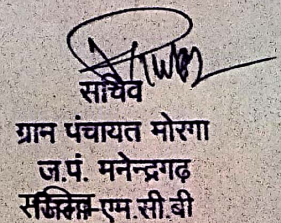 सचिव
ग्राम पंचायत मोरगा
ज.पं. मनेन्द्रगढ़
एम.सी.बी